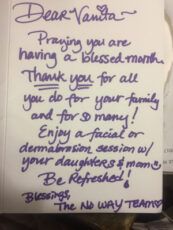 Dear Vanita~
Praying you are
having a blessed month.
Thank you for all
you do for your family
and for so many!
Enjoy a facial or
dermabrasion session w/
your daughters & mom
Be Refreshed!
Blessings,
The NO WAY TEAM